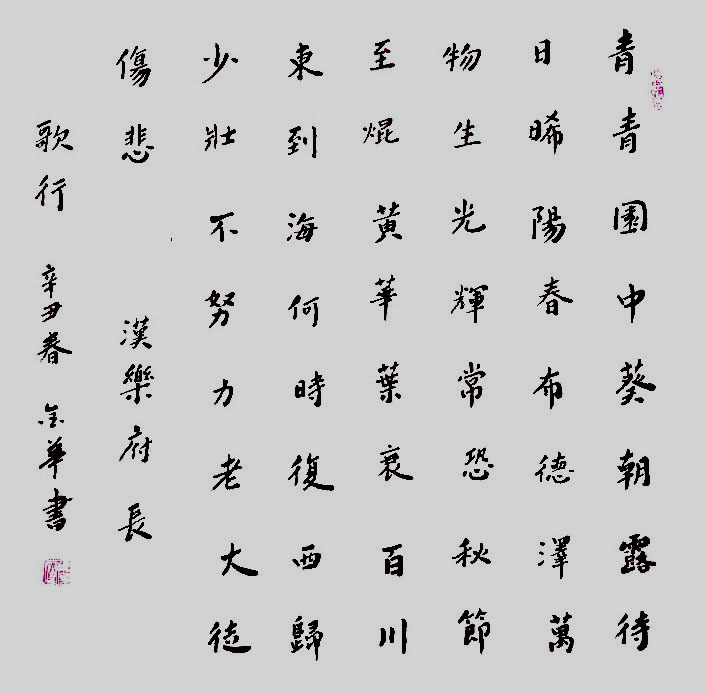 青青園中葵朝露待
日晞陽春布德澤萬
物生光輝常恐秋節
至焜黃華葉衰百川
東到海何時復西歸
少壯不努力老大徒
傷悲 漢樂府長
歌行 辛丑春 金華書